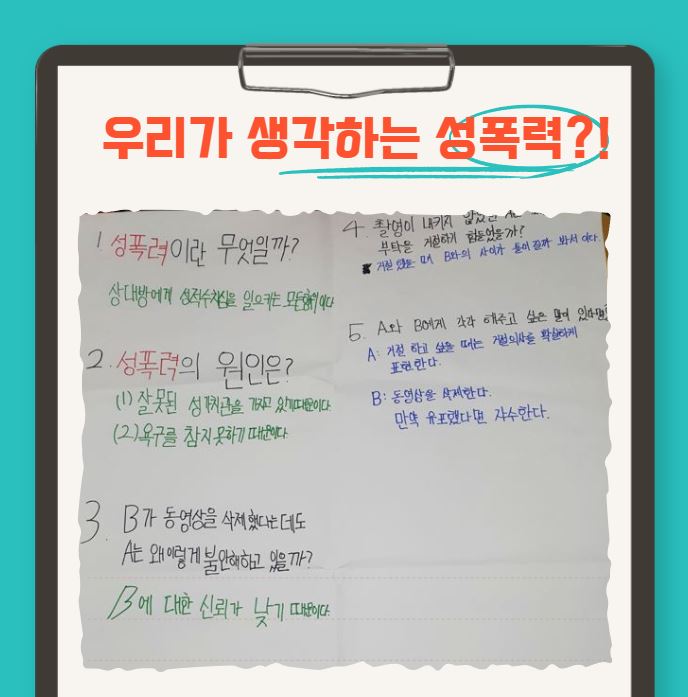 우리가 생각하는 성폭력?!
1 성폭력이란 무엇일까?
상대방에게 성적수치심을 일으키는 모든행위이다
2. 성폭력의 원인은?
(1) 잘못된 성가치관을 가지고 있기때문이다.
(2) 욕구를 참지못하기 때문이다
3. B가 동영상을 삭제했다는데도
A는 왜이렇게 불안해하고 있을까?
B에 대한 신뢰가 낮기 때문이다.
4. 촬영이 내키지 않았을
부탁을 거절하기 힘들었을까?
거절 했을 때 B와의 사이가 틀어질까 봐서 이다.
5. A와 B에게 각각 해주고 싶은 말이 있다면?
A: 거절 하고 싶을 때는 거절의사를 확실하게
표현한다.
B: 동영상을 삭제한다.
만약 유포했다면 자수한다.